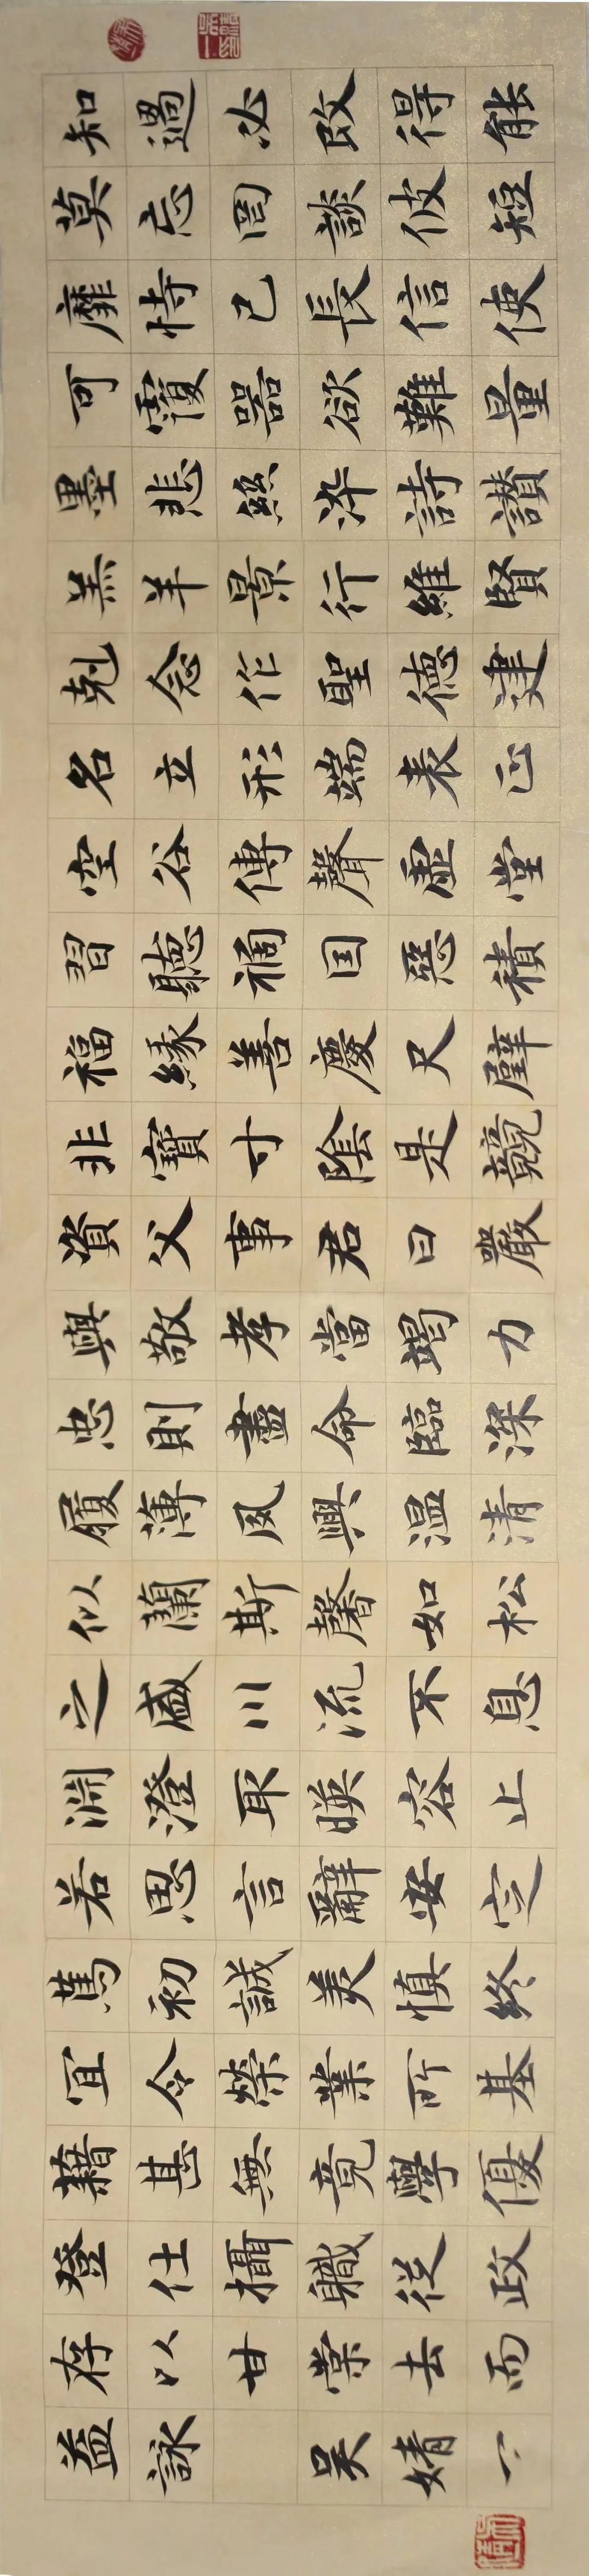 知過必改得能
莫忘罔談彼短
靡恃己長信使
可覆器欲難量
墨悲絲染詩讃
羔羊景行維賢
剋念作聖德建
名立形端表正
空谷傳聲虛堂
習聽禍因惡積
福緣善慶尺璧
非寶寸陰是競
資父事君曰嚴
與敬孝當竭力
忠則盡命臨深
履薄夙興温清
似蘭斯馨如松
之盛川流不息
淵澄取暎容止
若思言辭安定
篤初誠美慎終
宜令榮業所基
籍甚無竟學優
登仕攝職從政
存以甘棠去而
益詠 吴婧